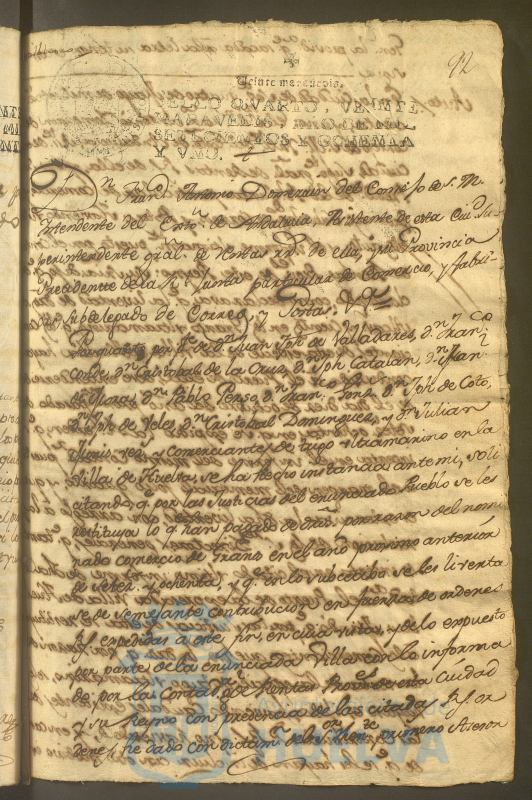 92
Veinte maravedis.
SELLO QVARTO, VEINTE
MARAVEDIS, AÑO DE MIL
SETECIENTOS Y OCHENTA
Y VNO.
Dn. Franco. Antonio Domezain del Consejo de S. M.
Intendente del Exto. de Andalucia, Asistente de esta Ciu. Su
perintendente gral. de Rentas rs. de ella, y su Provincia
Presidente de la Rl. Junta particular de Comercio, y fabri
cas, Subdelegado de Correos, y Postas &
Por quanto por pte. de dn. Juan Jph de Valladares, dn. Franco.
Conde, dn. Cristobal de la Cruz, dn. Jph Catalan, dn. Fran
de Mora, dn. Pablo Penso, dn. Fran dn. Jph de Coto,
dn. Jph de Veles, dn. Cristobal Dominguez, y dn. Julian
vezs. y Comerciantes de trigo ultramarino en la
Villa de Huelva, se ha hecho instancia ante mi, soli
citando, q. por las Justicias del enunciado Pueblo se les
restituya lo q. han pagado de por razon del nomi
nado comercio de Granos en el año proximo anterior
de setezs. y ochenta, y q. en lo subcecibo se les livertа
se de semejante contribucion en fuerza de ordenes
Rs. expedidas a este fin, en cuia vista, y de lo expuesto
por parte de la enunciada Villa, con lo informa
do por las Contads. gs. de Rentas Proves. de esta Ciudad
y su Reyno con presencia de las citadas Rs. or
denes, he dado con dictamen del mi primero Asesor
HUELVA